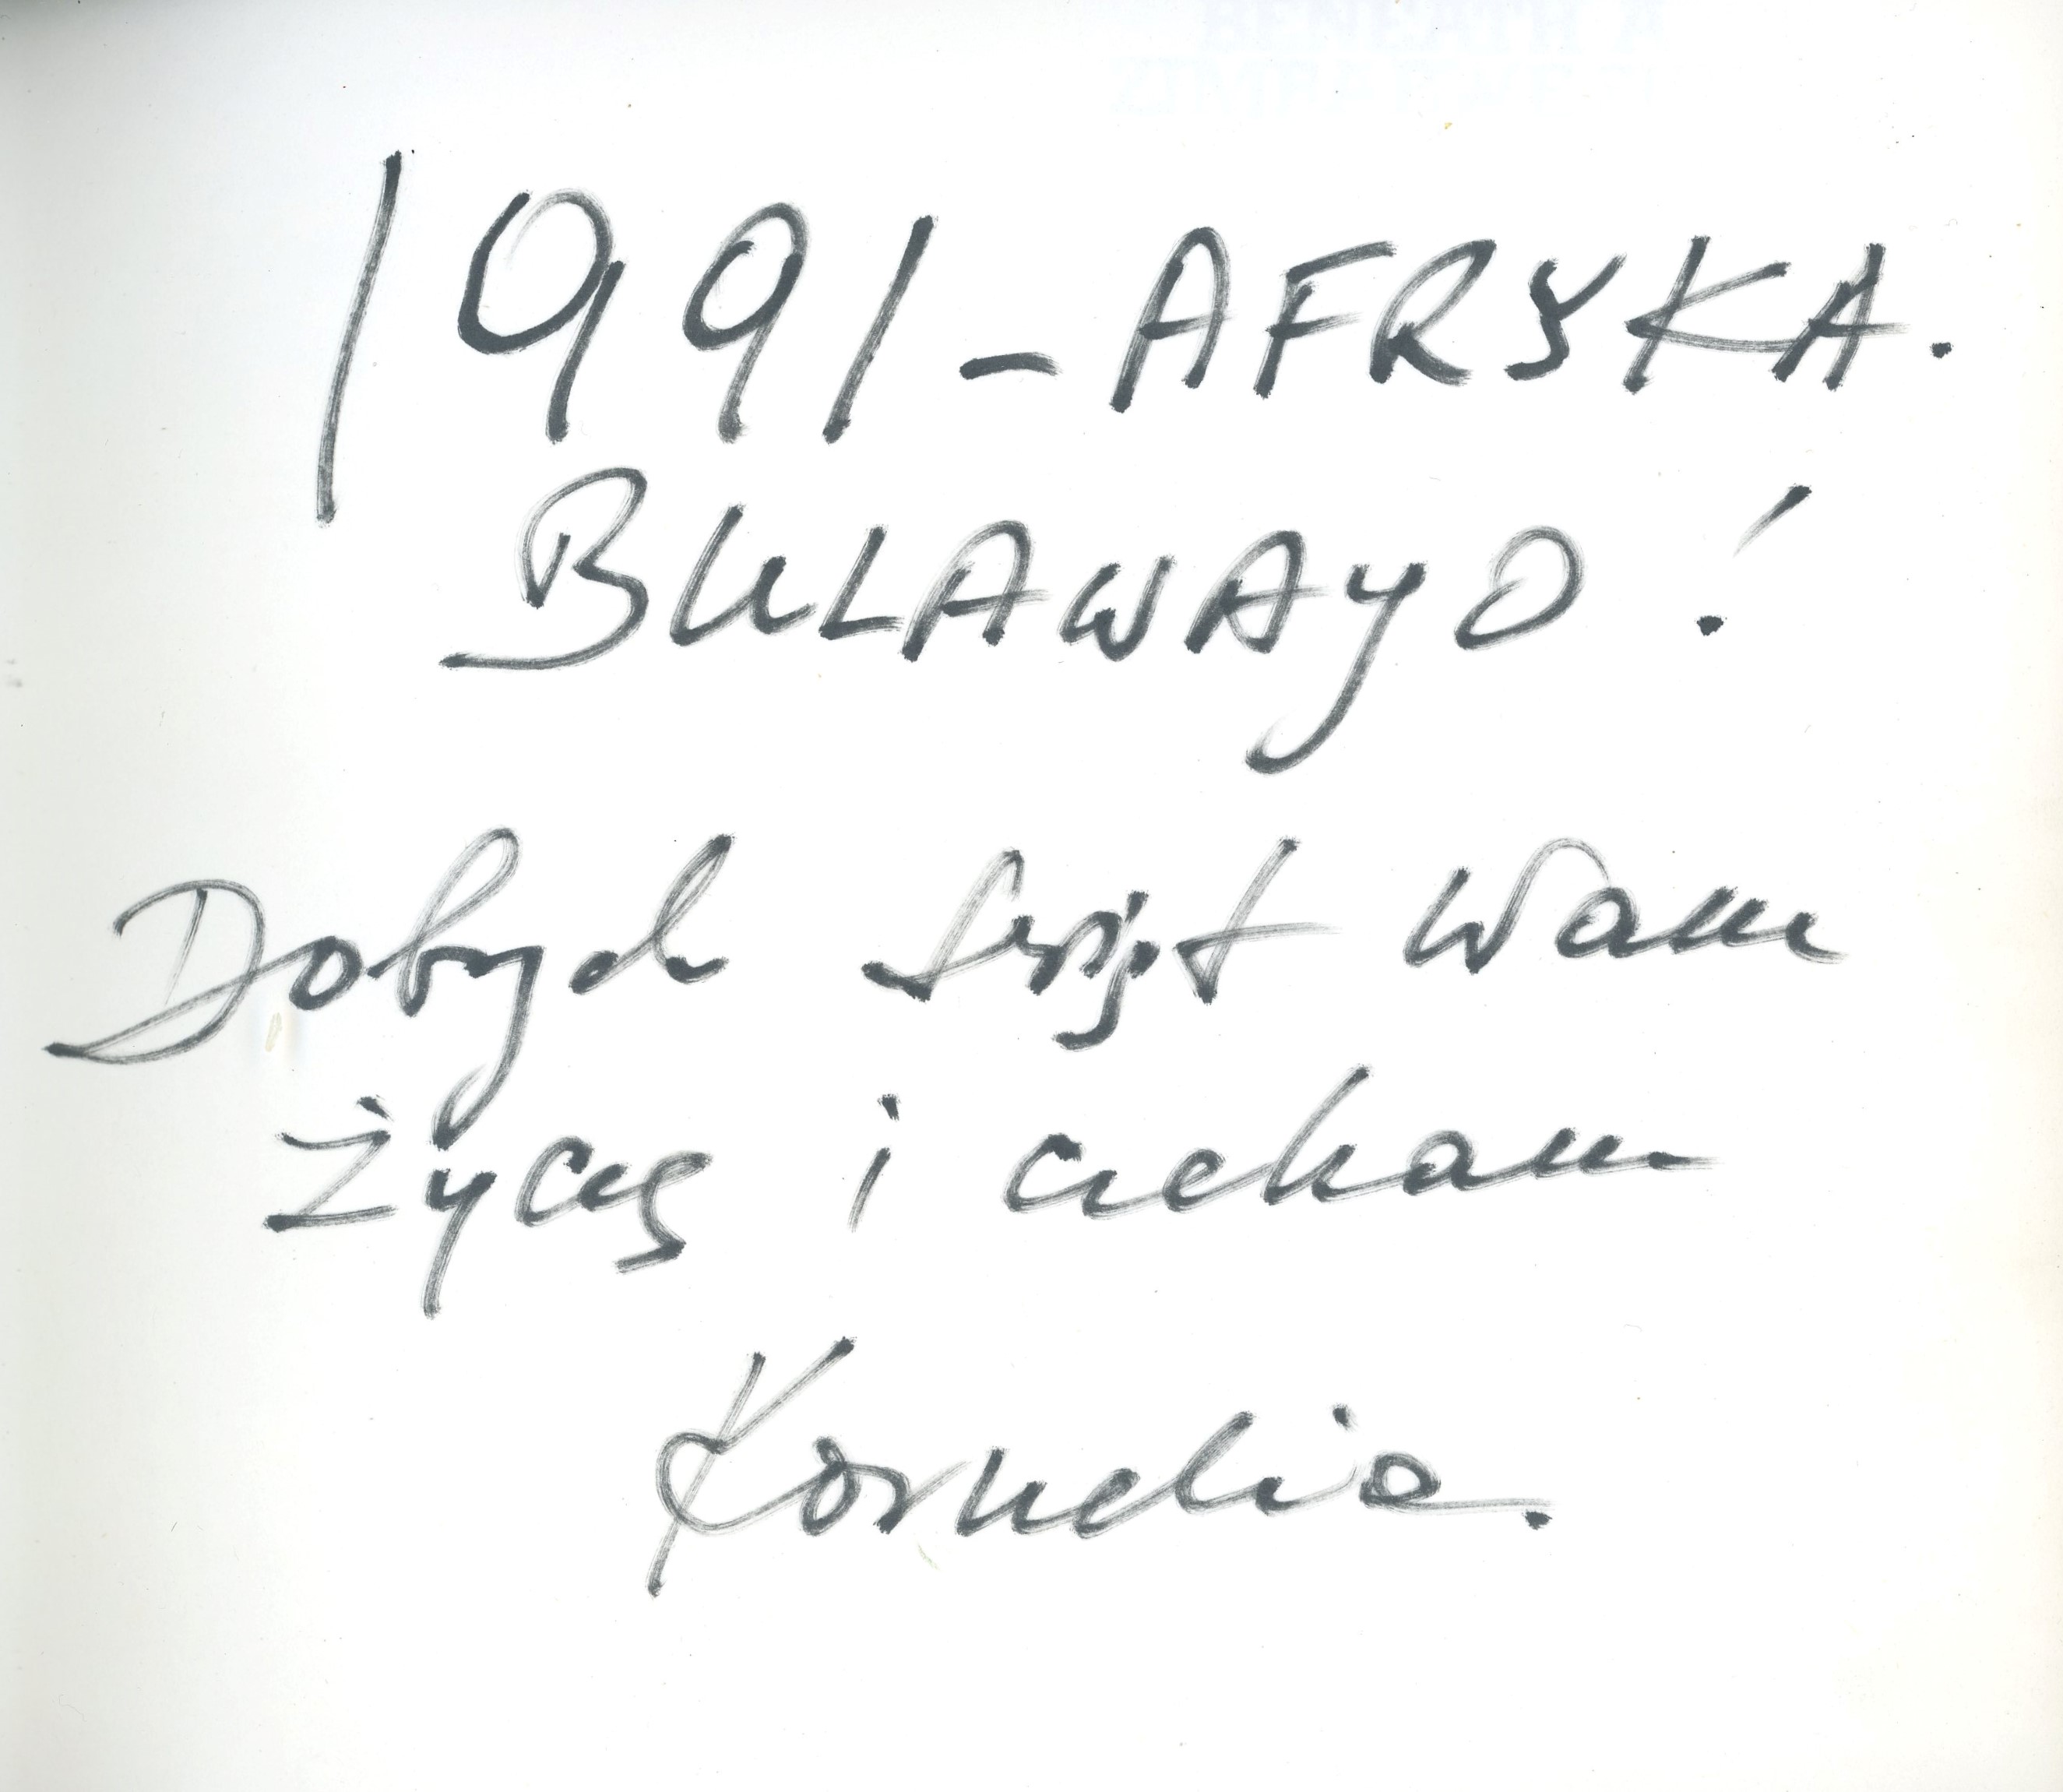 1991 - AFRYKA.
BULAWAYO!
Dobrych Świąt Wam
życzę i czekam
Kornelia.